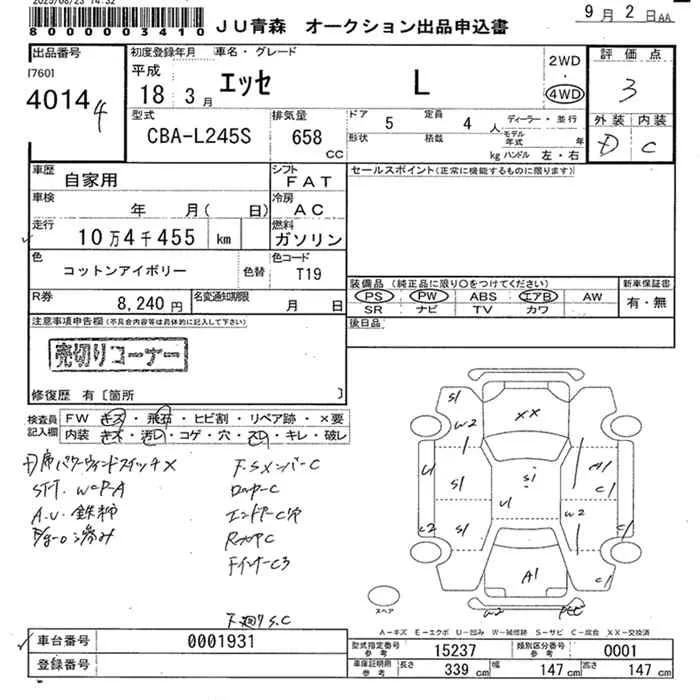 2025/08/23 14:32
8000003410
JU青森 オークション出品申込書
9月2日AA
出品番号
[7601
40144
初度登録年月
平成
18 3月
車名・グレード
エッセ L
2WD
・
4WD
評価点
3
外装 内装
D C
型式
CBA-L245S
排気量
658
CC
ドア
5
定員
4人
形状
積載
kg
ディーラー・並行
モデル年式
年
ハンドル 左・右
車歴
自家用
シフト
FAT
セールスポイント(正常に機能するものに限ります)
車検
年 月( 日)
冷房
AC
走行
10万4千455 km
燃料
ガソリン
色
コットンアイボリー
色替
色コード
T19
装備品 (純正品に限り○をつけてください)
PS PW ABS エアB AW
SR ナビ TV カワ
新車保証書
有・無
R券
8,240円
名変通知期限
月 日
後日品
注意事項申告欄(不具合内容等は具体的に記入して下さい)
売切りコーナー
修復歴 有〔箇所 〕
検査員記入欄
FW キズ・飛石・ヒビ割・リペア跡・×要
内装 キズ・汚れ・コゲ・穴・スレ・キレ・破レ
D席パワーウィンドスイッチ×
F.SメンバーC
ロッカーC
エンドアーC穴
FインナーC3
下廻りS.C
S1
W2
XX
S1
U1
A1
C1
U1
S1
W2
C2
S1
A1
C1
W2
スペア
A-キズ E-エクボ U-凹み W-補修跡 S-サビ C-腐食 XX-交換済
車台番号
0001931
登録番号
型式指定番号
参考
15237
類別区分番号
参考
0001
車庫証明用
参考
長さ
339 cm
幅
147 cm
高さ
147 cm